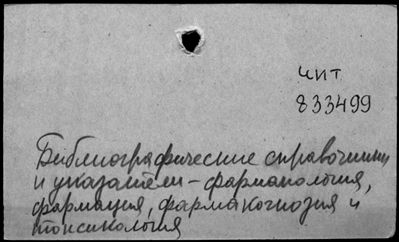 чит
833499
Библиографические справочники
и указатели - фармакология,
фармация, фармакогнозия и
токсикология